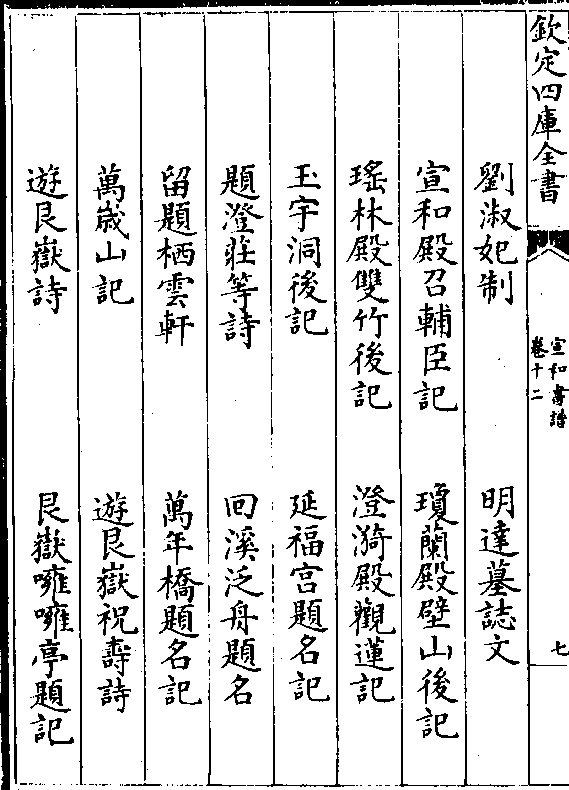 欽定四庫全書
宣和書譜
卷十二
七
劉淑妃制　明達墓誌文
宣和殿召輔臣記　瓊蘭殿壁山後記
瑤林殿雙竹後記　澄漪殿觀蓮記
玉宇洞後記　延福宫題名記
題澄莊等詩　回溪泛舟題名
留題栖雲軒　萬年橋題名記
萬歲山記　遊艮嶽祝壽詩
遊艮嶽詩　艮嶽噰噰亭題記